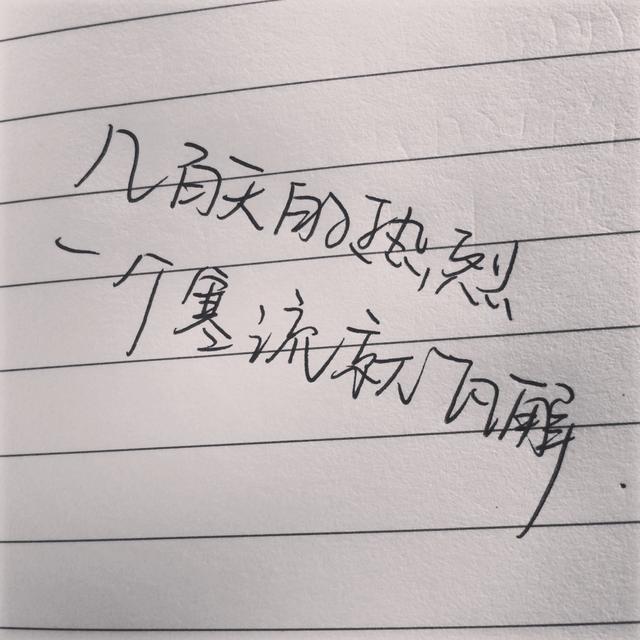 几百天的热烈
一个寒流就瓦解